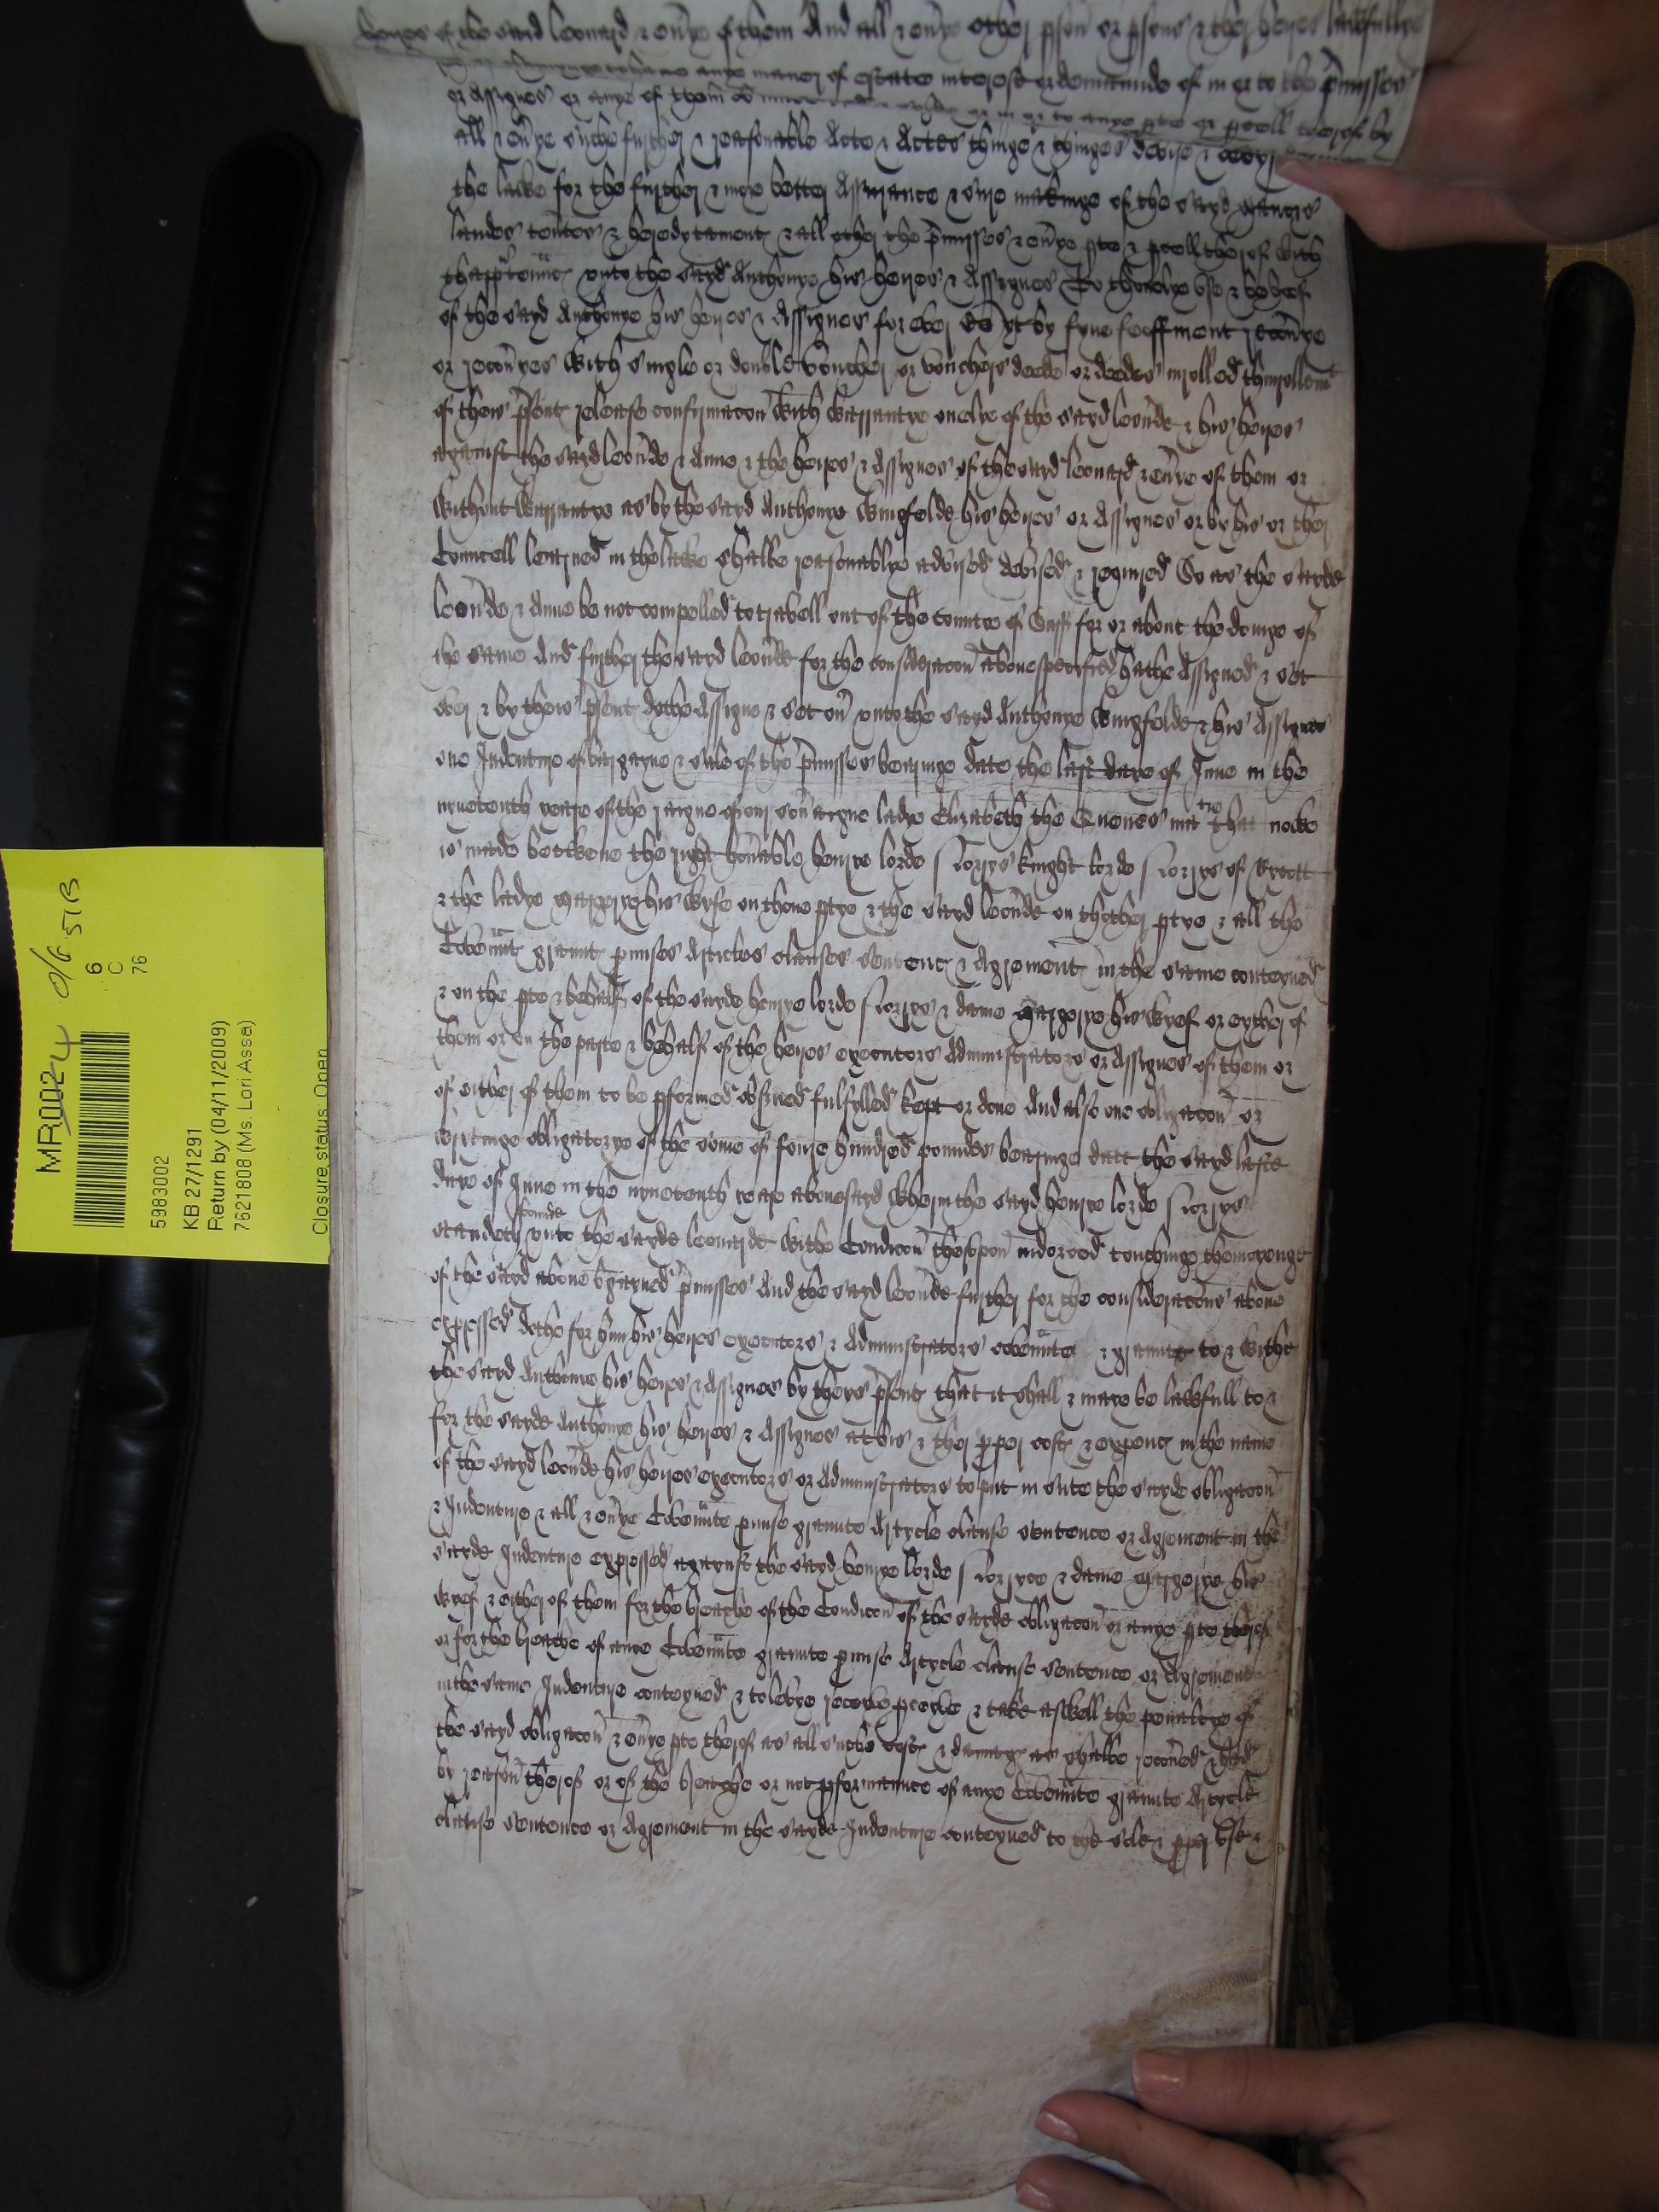 heyres of the sayd leonard & eu'ye of them And all & eu'ye other p'son or p'sons & ther heyres lawfullye
anye maner of estate interest or demaunde of in or to the p'misses
or Assignes or anye of them or in or to anye p'te or p'cell therof by
all & eu'ye suche further & reasonable Acte & Actes thinge & thinges devise &
the lawe for the further & more better Assurance & sure makinge of the sayd Manors
landes ten'tes & heredytament & all other the p'misses & eu'ye p'te & p'cell therof with
thapp'ten'nc' vnto the sayd Anthonye his heyres & Assignes To thonelye vse & behoof
of the sayd Anthonye his heyres & Assignes for ever be yt by fyne feoffment recou'ye
or recou'yes with single or double voucher or vouchers deede or deedes inrolled thinrollem't
of theis p'sent release confirmacon with warrantye onelye of the sayd leon'de & his heyres
against the sayd leon'de & Anne & the heyres & Assignes of the sayd leonard & eu'ye of them or
without warrantye as by the sayd Anthonye Wingfelde his heyres or Assignes or by his or ther
Councell learned in the lawe shalbe reasonablye advised devised & required So as the sayde
leon'de & Anne be not compelled to travell out of the countye of Suff for or about the doinge of
the same And further the sayd leon'de for the consideracon abouespecified hathe Assigned & set
over & by theis p'sent dothe Assigne & set ou' vnto the sayd Anthonye Wingfelde & his Assignes
one Indenture of bargayne & sale of the p'misses bearinge date the last daye of June in the
nynetenth yeare of the raigne of our sou'aigne ladye Elizabeth the Quenes ma'tie that nowe
is made betwene the right hon'able henrye lorde Norrys knight lorde Norrys of Rycott
& the ladye Margerye his wyfe on thone p'tye & the sayd leon'de on thother p'tye & all the
Coven'nt graunt p'mises Articles clauses sentenc' & Agrement in the same conteyned
& on the p'te & behalf of the sayde henrye lorde Norrys & dame Margerye his wyef or eyther of
them or on the parte & behalf of the heyres executors Administrators or Assignes of them or
of either of them to be p'formed obs'ued fulfylled kept or done And also one obligacon or
wrytinge obligatorye of the some of foure hundred poundes bearinge date the sayd laste
daye of June in the nynetenth yeare abouesayd wherin the sayd henrye lorde Norrys
standeth bounde vnto the sayde leonarde withe Condicon thervpon indorced touchinge
of the sayd aboue b'gayned p'misses And the sayd leon'de further for the consideracons aboue
expressed dothe for hym his heyres executors & Administrators coven'nte & graunte to & withe
the sayd Anthonye his heyres & Assignes by theys p'sent that it shall & maye be lawfull to &
for the sayde Anthonye his heyres & Assignes at his & ther p'per cost & expenc' in the name
of the sayd leon'de his heyres executors or Administrators to put in sute the sayde obligacon
& Indenture & all & eu'ye Coven'nte p'mise graunte Artycle clause sentence or Agrement in the
sayde Indenture expressed agaynst the sayd henrye lorde Norryce & dame Margerye his
wyef & either of them for the breache of the Condicon of the sayde obligacon or anye p'te therof
or for the breache of anye Coven'nte graunte p'mise Artycle clause sentence or Agrement
in the same Indenture conteyned & to levye recover & take aswell the penaltye of
the sayd obligacon & eu'ye p'te therof as all suche cost & damag' as shalbe recou'ed & had
by reason therof or of the breache or not p'formaunce of anye Coven'nte graunte Artycle
clause sentence or Agrement in the sayde Indenture conteyned to the sole & p'per vse &
MR002 4 O/S 51B
6
C
76
5983002
KB 27/1291
Return by (04/11/2009)
7621808 (Ms. Lori Assa)
Closure status Open